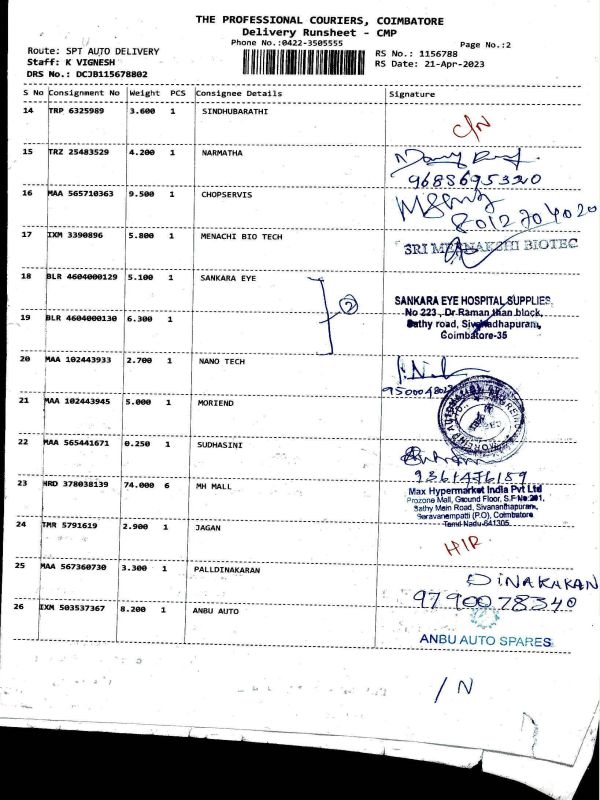 THE PROFESSIONAL COURIERS, COIMBATORE
Delivery Runsheet - CMP
Phone No.:0422-3505555
Page No.:2
Route: SPT AUTO DELIVERY
RS No.: 1156788
Staff: K VIGNESH
RS Date: 21-Apr-2023
DRS No.: DCJB115678802
S No Consignment No Weight PCS Consignee Details Signature
14 TRP 6325989 3.600 1 SINDHUBARATHI
C/N
15 TRZ 25483529 4.200 1 NARMATHA
9688695320
16 MAA 565710363 9.500 1 CHOPSERVIS
8012704020
17 IXM 3390896 5.800 1 MENACHI BIO TECH
SRI MEENAKSHI BIOTEC
18 BLR 4604000129 5.100 1 SANKARA EYE
2
SANKARA EYE HOSPITAL SUPPLIES,
No 223, Dr Raman than block,
Sathy road, Sivanadhapuram,
Coimbatore-35
19 BLR 4604000130 6.300 1
20 MAA 102443933 2.700 1 NANO TECH
21 MAA 102443945 5.000 1 MORIEND
22 MAA 565441671 0.250 1 SUDHASINI
9361476189
23 HRD 378038139 74.000 6 MH MALL
Max Hypermarket India Pvt Ltd
Prozone Mall, Ground Floor, S.F No:291,
Sathy Main Road, Sivananthapuram,
Saravanampatti (P.O), Coimbatore
Tamil Nadu-641305
24 TMR 5791619 2.900 1 JAGAN
HIR
25 MAA 567360730 3.300 1 PALLDINAKARAN
DINAKARAN
9790078340
26 IXM 503537367 8.200 1 ANBU AUTO
ANBU AUTO SPARES
/ N